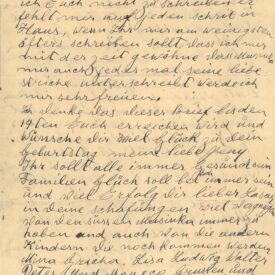 ich Euch nicht zu schreiben er
fehlt mir auf jeden schrit in
Haus, wenn Ihr mir am wenigsten
öfters schreiben sollt das ich mir
mit der zeit gewöhne das
mir auch jedes mal seine liebe
striche unterschreibt werde ich
mir sehr freuen.
Ich denke das dieser Brief bis den
19ten Euch erreichen wird und
wünsche dir viel Glück zu dein
Geburtstag meine liebe
Ihr sollt alle immer gesund sein
Familien Glück soll bei immer sein
und viel Erfolg dir lieber
in deine viel
von den sins immer
haben und auch von die andern
Kindern die noch kommen werden
Mina Lisa Ludwig Walter
Peter und